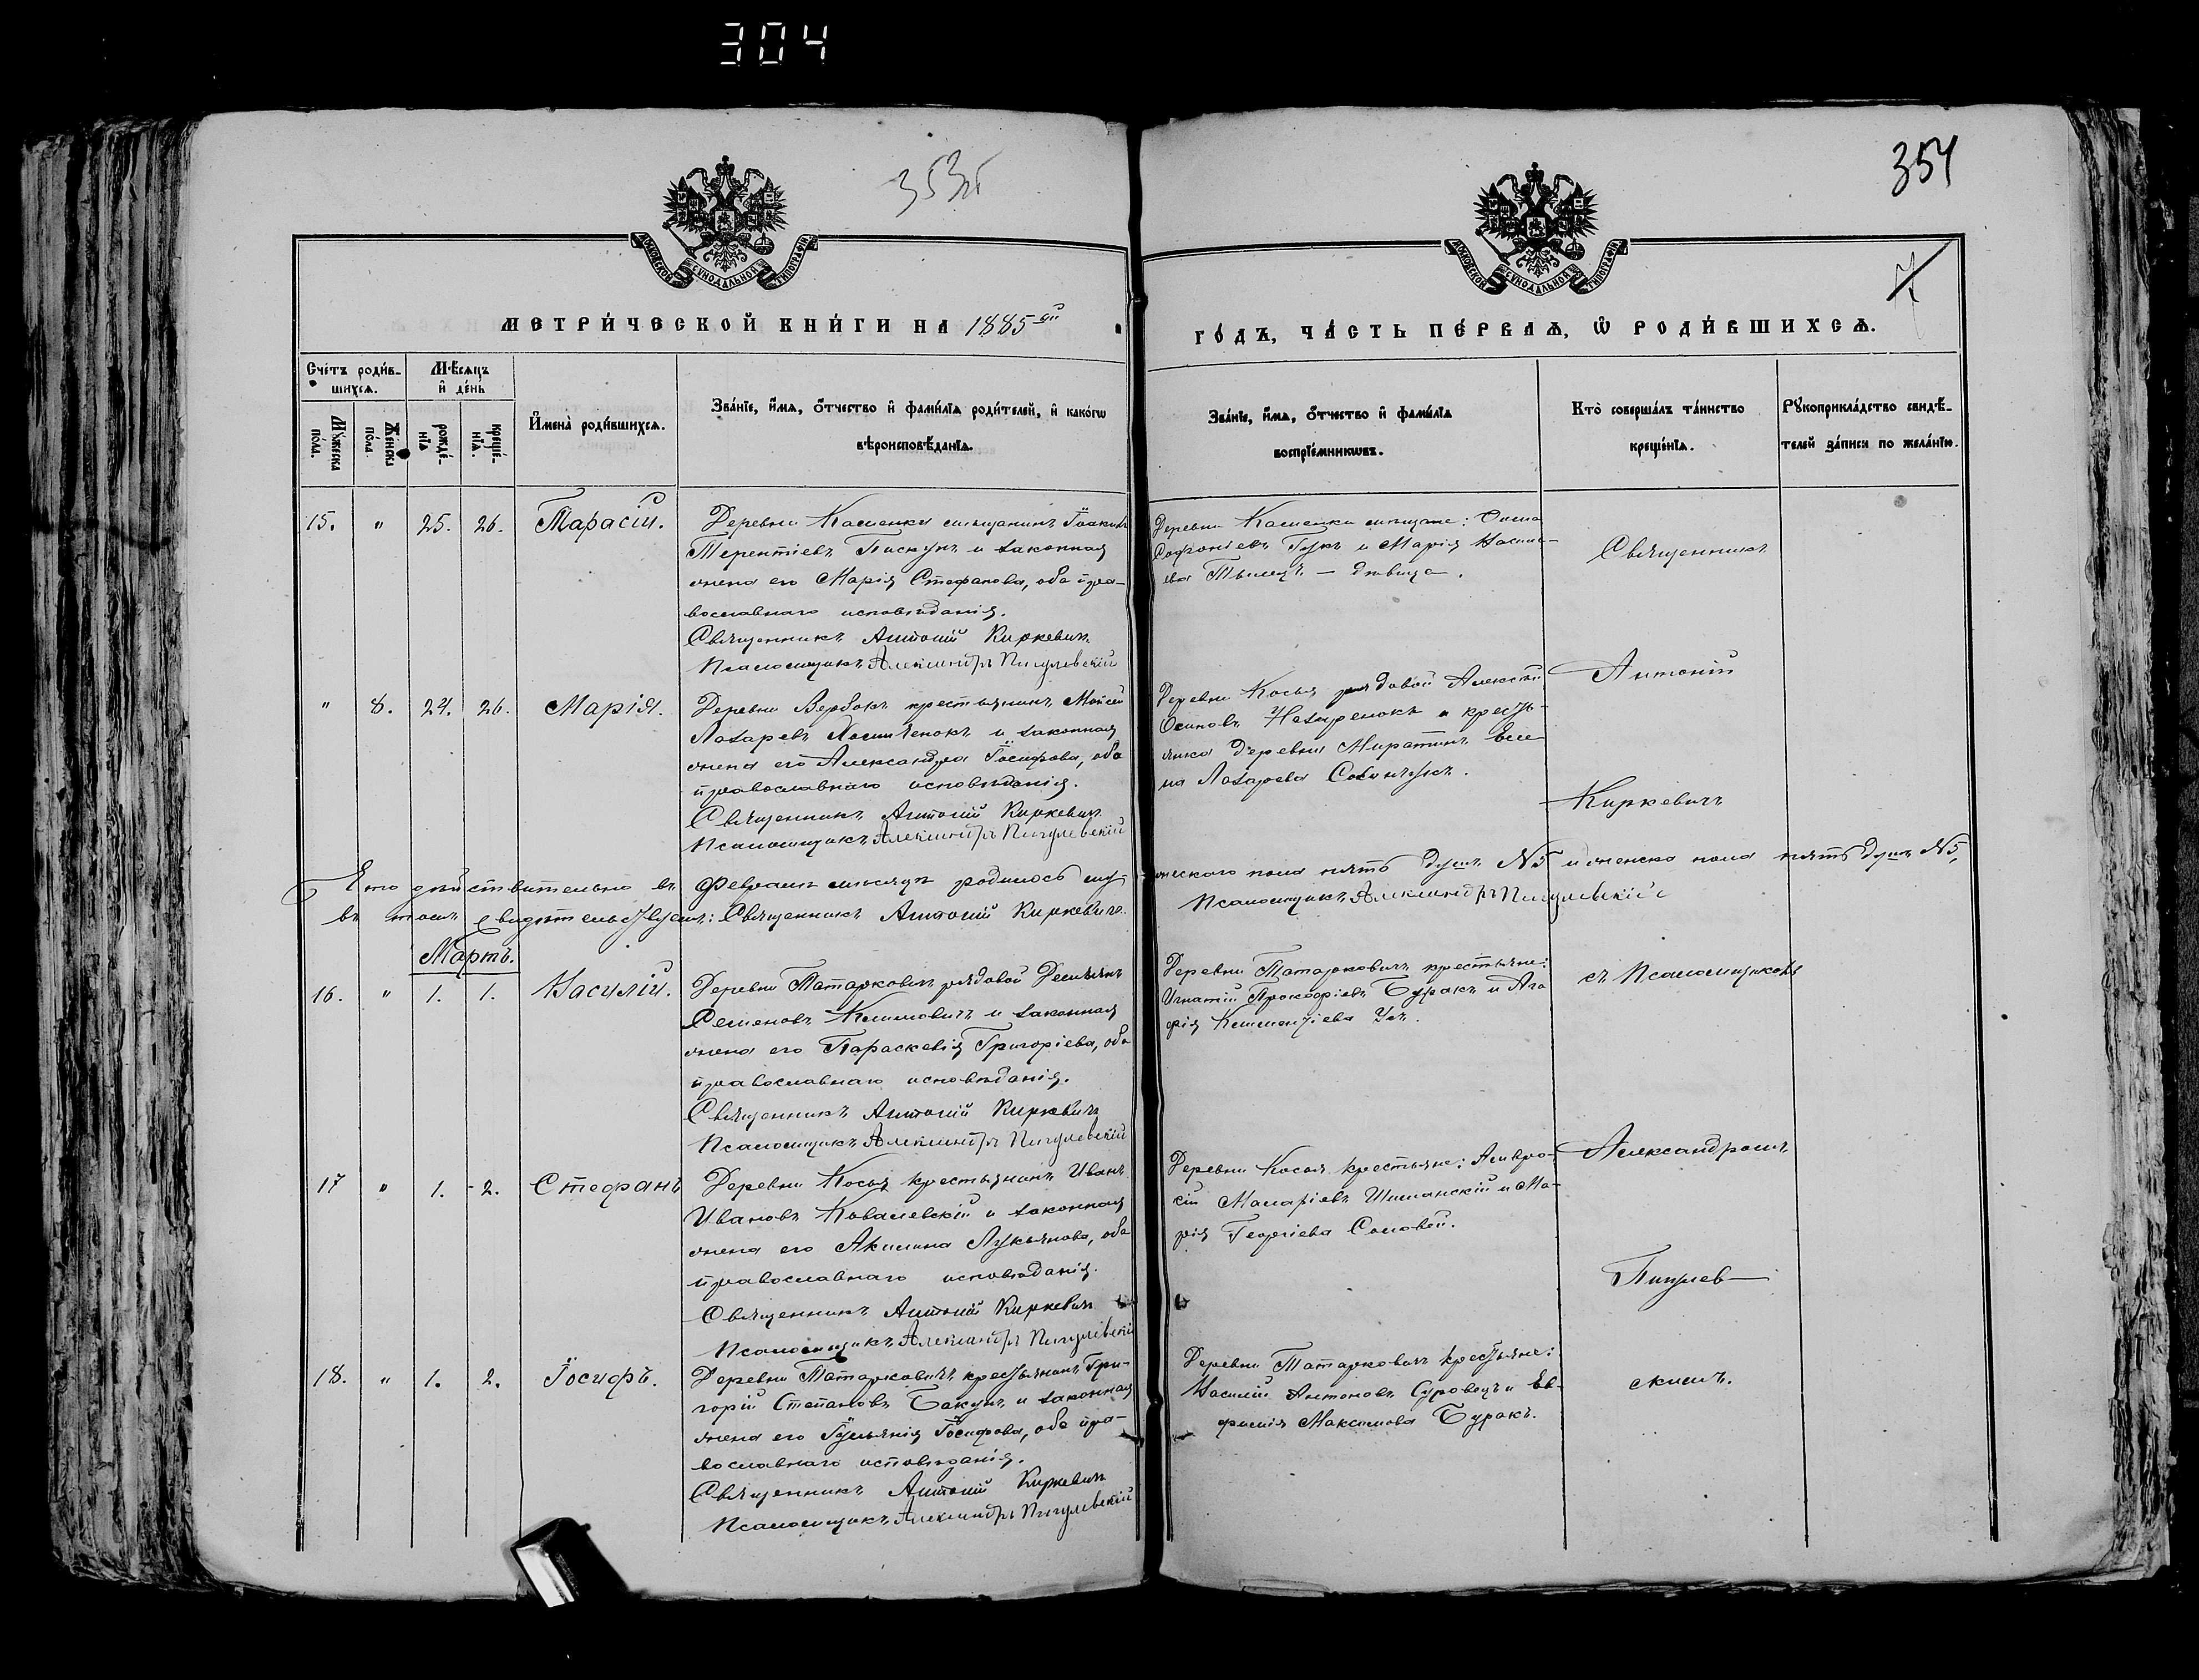 304
353об
354
7
МОСКОВСКОЙ СѴНОДАЛЬНОЙ ТИПОГРАФІИ
МОСКОВСКОЙ СѴНОДАЛЬНОЙ ТИПОГРАФІИ
МЕТРИ́ЧЕСКОЙ КНИ́ГИ НА 1885ый
ГО́ДЪ, ЧА́СТЬ ПЕ́РВАЯ, Ѡ РОДИ́ВШИХСЯ.
Сче́тъ роди́в-
шихся.
Мѣ́сяцъ
и де́нь
Му́жеска по́ла.
Же́нска по́ла
рожде́-
нїя
креще́-
нїя.
Имена̀ роди́вшихся.
Зва́нїе, и́мя, ѻ́тчество и фами́лїя роди́телей, и како́гѡ
вѣроисповѣ́данїя.
Зва́нїе, и́мя, ѻ́тчество и фами́лїя
воспрїе́мникѡвъ.
Кто̀ соверша́лъ та́инство
креще́нїя.
Рꙋкоприкла́дство свидѣ́-
телей за́писи по жела́нїю.
15. " 25. 26. Тарасій.
Деревни Каменки мѣщанинъ Іоакимъ
Терентіевъ Пискунъ и законная
жена его Марія Стефанова, оба пра-
вославнаго исповѣданія.
Священникъ Антоній Киркевичъ
Псаломщикъ Александръ Пигулевскій
Деревни Каменки мѣщане: Ѳома
Софроніевъ Гукъ и Марія Васильева
— дѣвица.
Священникъ
" 8. 24. 26. Марія.
Деревни Вербокъ крестьянинъ Моисей
Лазаревъ и законная
жена его Александра Іосифова, оба
православнаго исповѣданія.
Священникъ Антоній Киркевичъ
Псаломщикъ Александръ Пигулевскій
Деревни Косыя рядовой Алексѣй
Осиповъ Назаренокъ и кресть-
янка деревни Миратинъ Еле-
на Лазарева
Антоній
Киркевичъ
Что дѣйствительно въ Февралѣ мѣсяцѣ родилось муж-
ческаго пола пять душъ №5 и женска пола пять душъ №5,
въ томъ свидѣтельствуемъ: Священникъ Антоній Киркевичъ.
Псаломщикъ Александръ Пигулевскій
Мартъ.
16. " 1. 1. Василій.
Деревни Татарковичъ рядовой Демьянъ
Семеновъ Климовичъ и законная
жена его Параскевія Григоріева, оба
православнаго исповѣданія.
Священникъ Антоній Киркевичъ
Псаломщикъ Александръ Пигулевскій
Деревни Татарковичъ крестьяне:
Игнатій Прокофіевъ Буракъ и Ага-
фія Климентіева
съ Псаломщикомъ
17 " 1. 2. Стефанъ
Деревни Косыя крестьянинъ Иванъ
Ивановъ Ковалевскій и законная
жена его Акилина Лукьянова, оба
православнаго исповѣданія.
Священникъ Антоній Киркевичъ
Псаломщикъ Александръ Пигулевскій
Деревни Косыя крестьяне: Амвро-
сій Макаріевъ Шиманскій и Ма-
рія Георгіева Соловей.
Александромъ
Пигулев-
18. " 1. 2. Іосифъ.
Деревни Татарковичъ крестьянинъ Гри-
горій Степановъ Бакунъ и законная
жена его Іуліанія Іосифова, оба пра-
вославнаго исповѣданія.
Священникъ Антоній Киркевичъ
Псаломщикъ Александръ Пигулевскій
Деревни Татарковичъ крестьяне:
Василій Антоновъ Суровецъ и Ев-
фимія Максимова Буракъ.
скимъ.